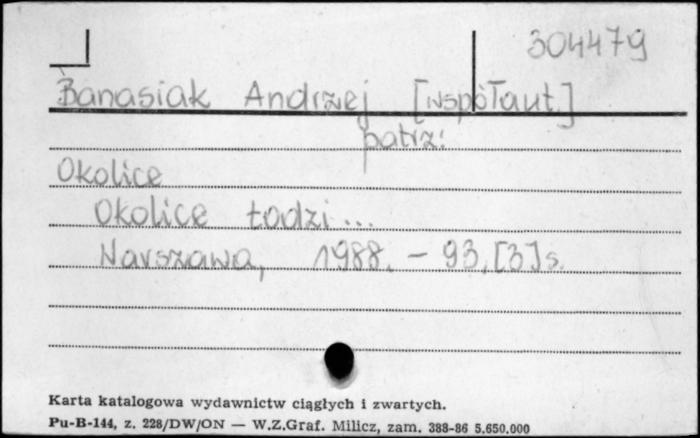 304479
Banasiak Andrzej [współaut.]
patrz:
Okolice
Okolice Łodzi...
Warszawa, 1988. - 93,[3]s.
Karta katalogowa wydawnictw ciągłych i zwartych.
Pu-B-144, z. 228/DW/ON — W.Z.Graf. Milicz, zam. 388-86 5.650.000